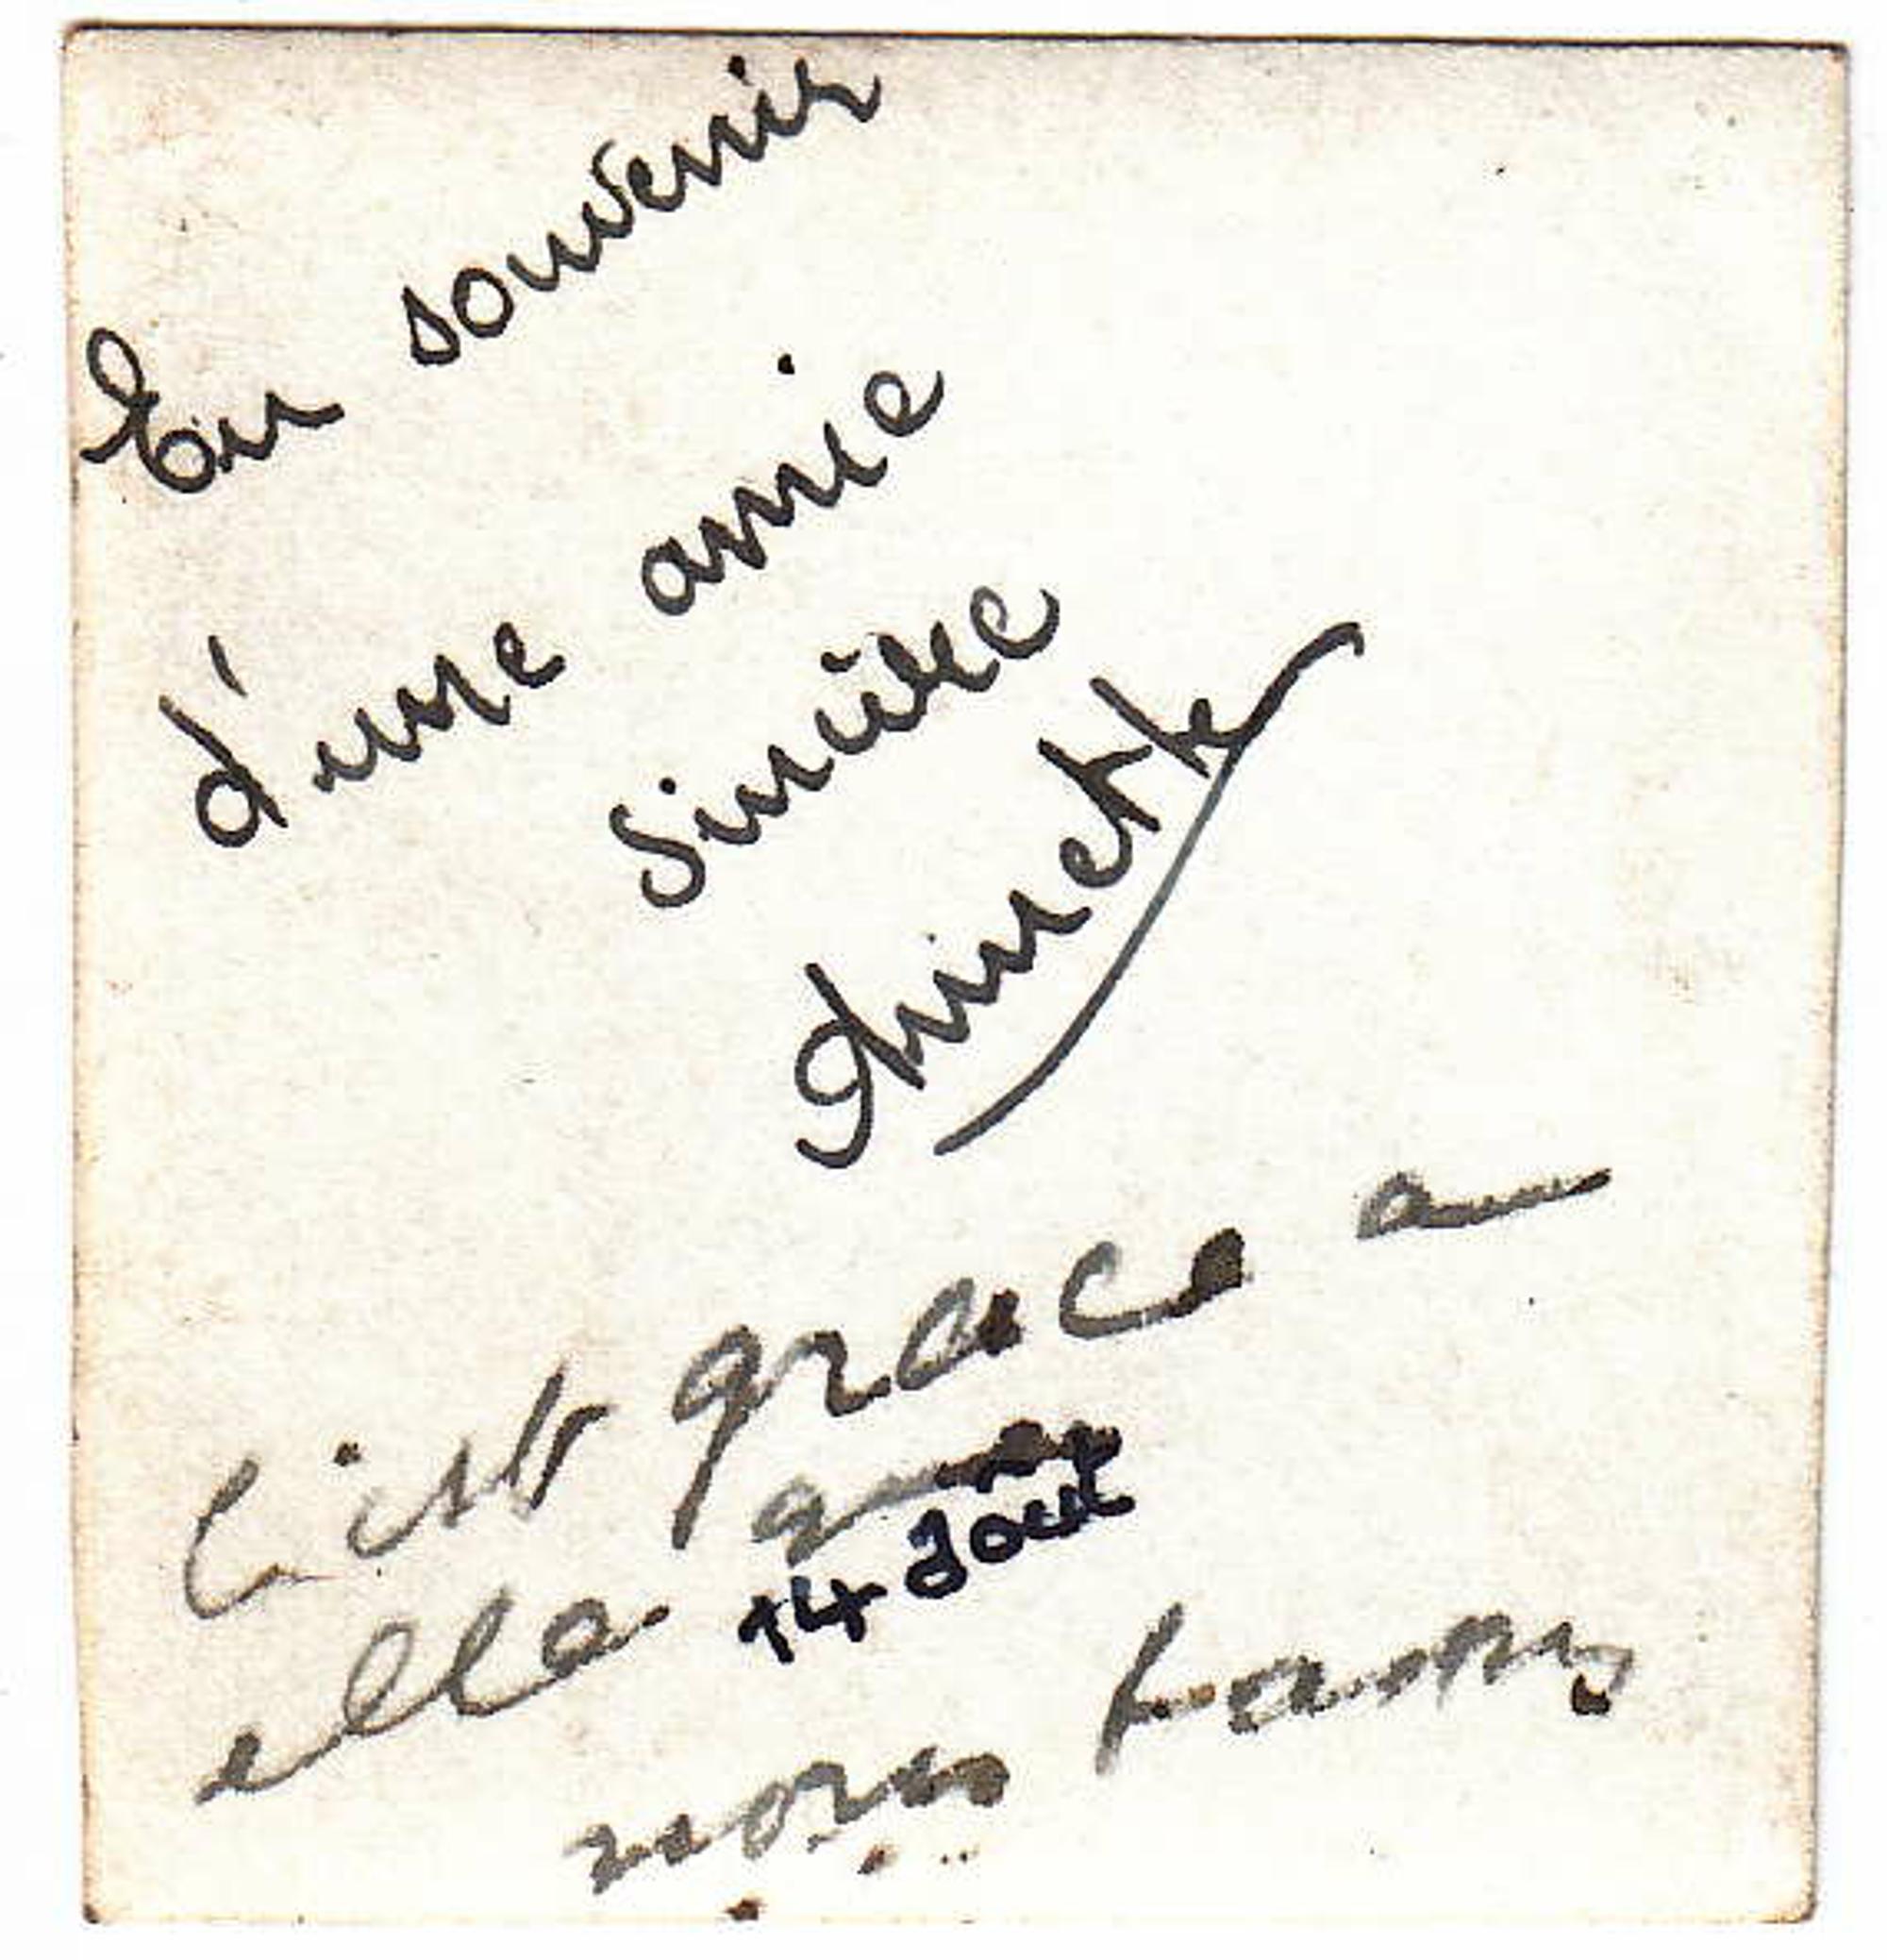 En souvenir
d'une amie
sincère
Aninette
C'est grace a
ella que
14 Aout
nous